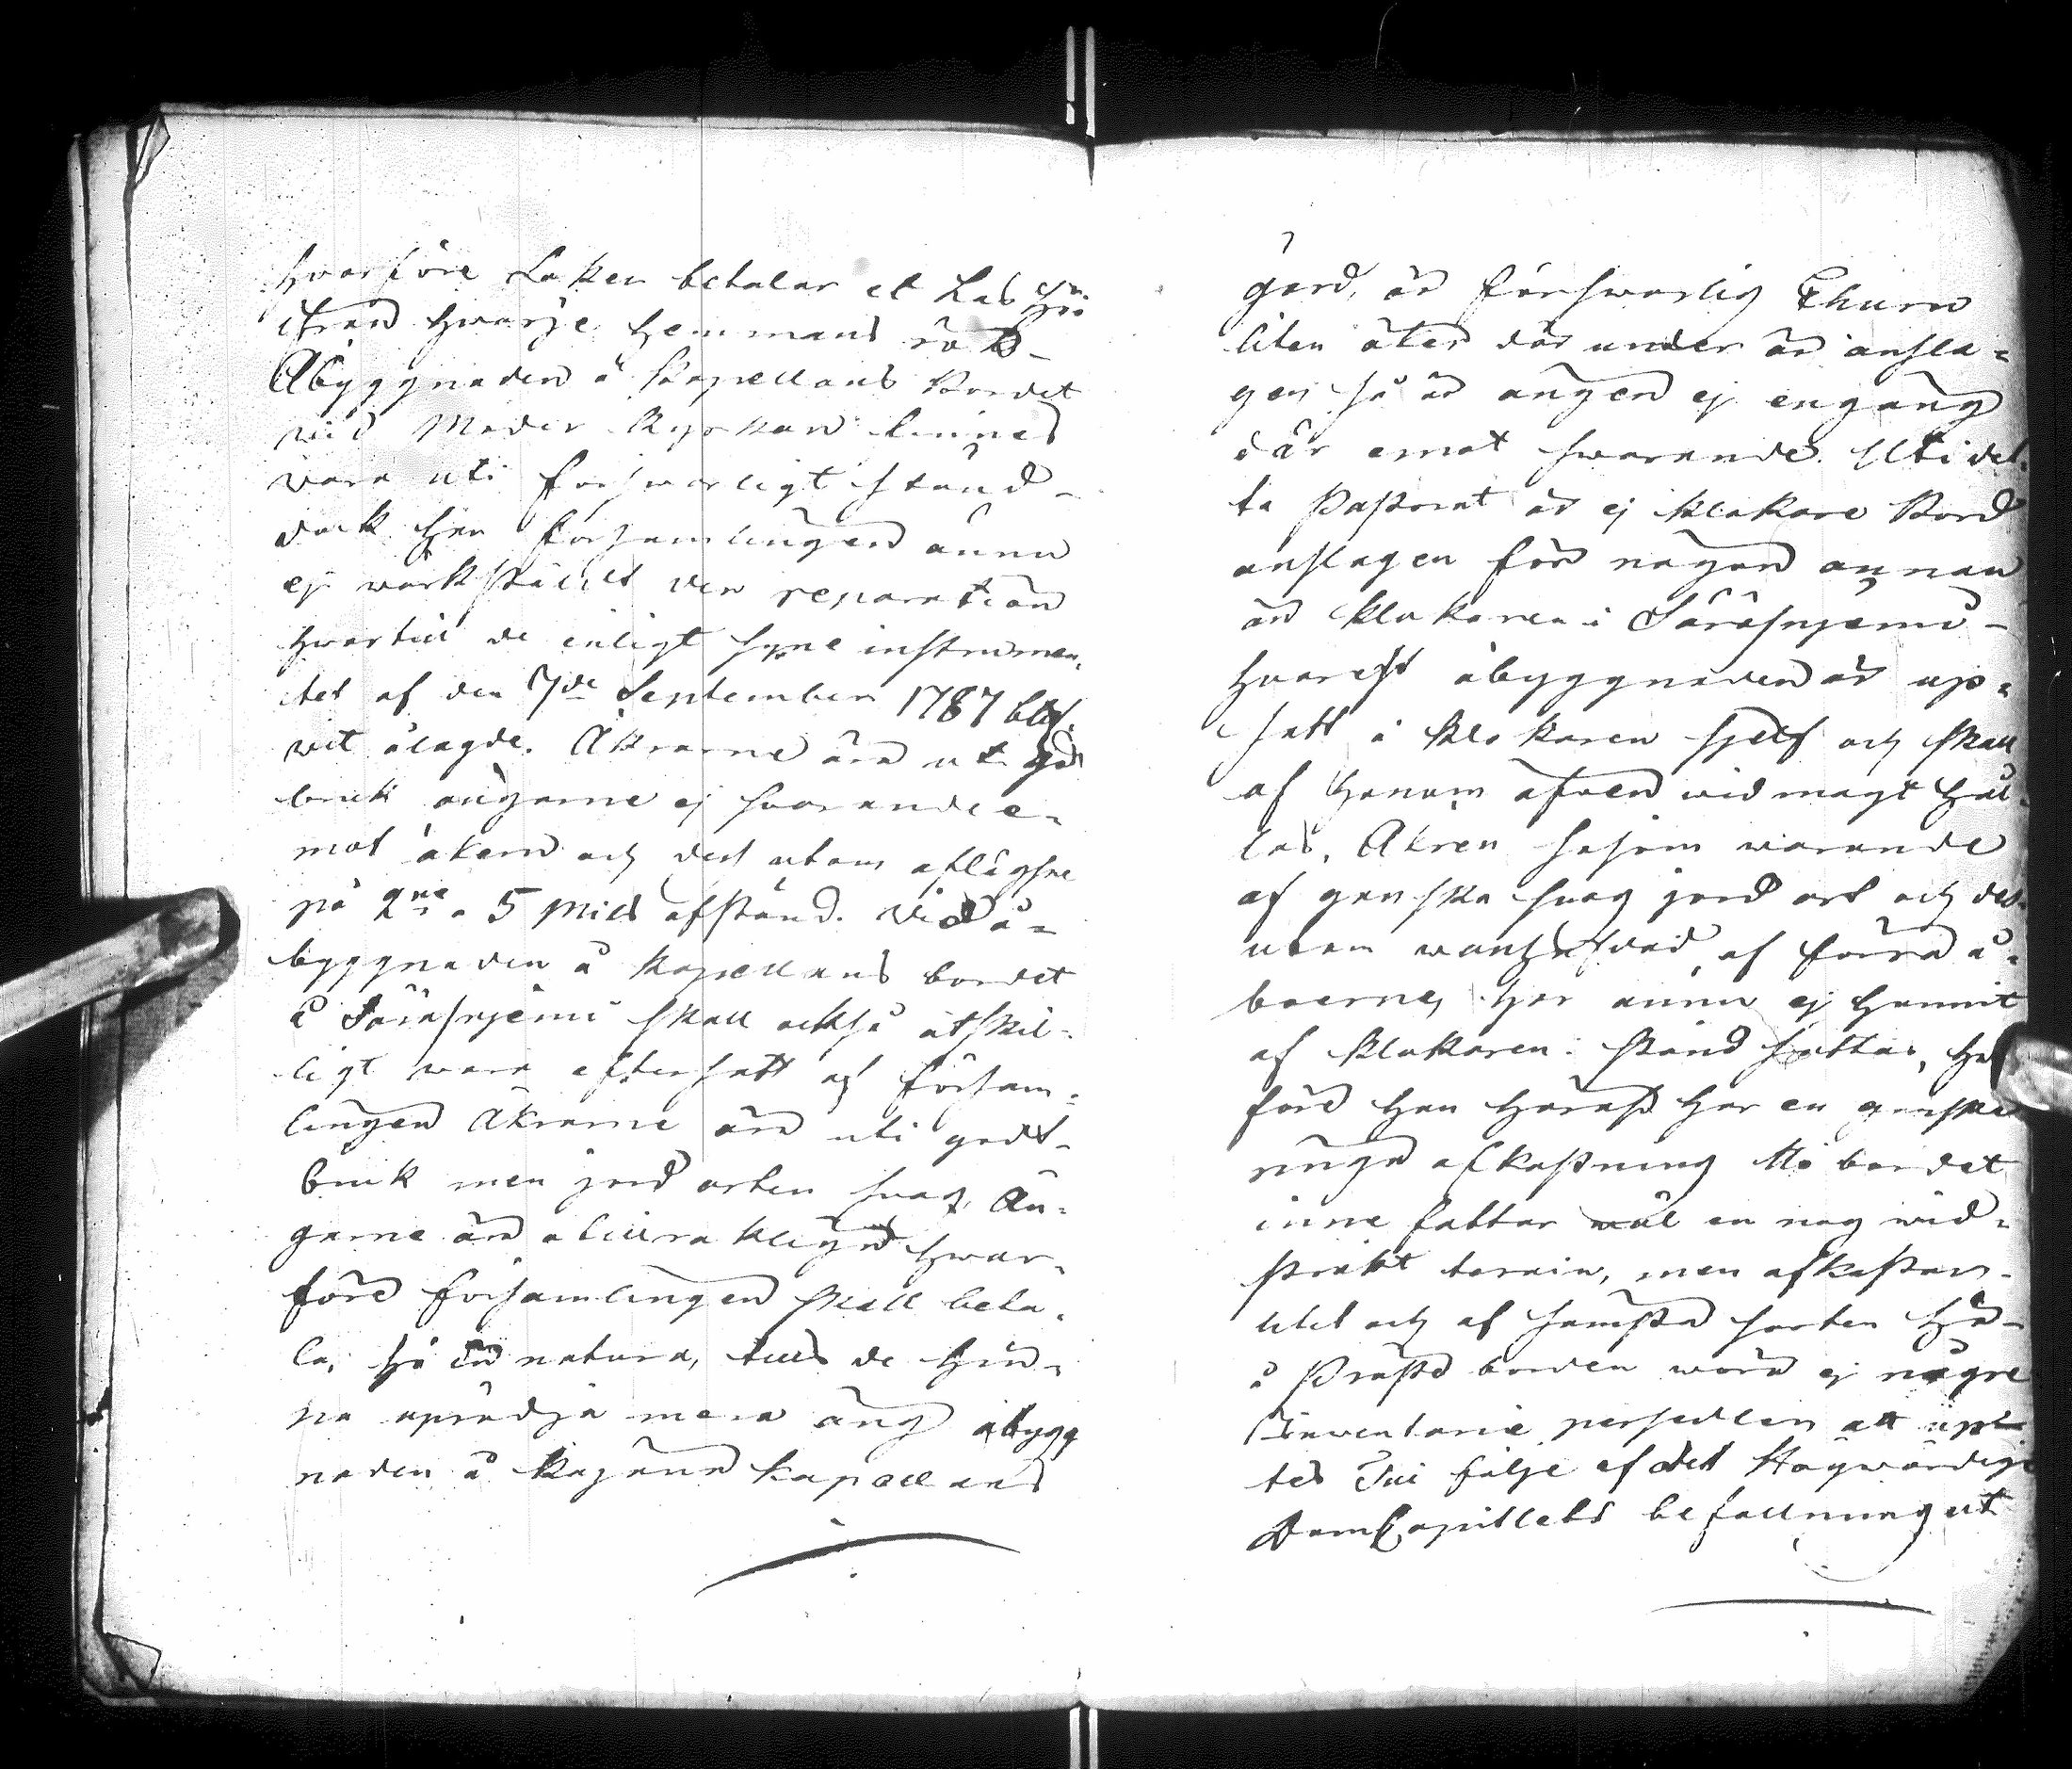 hvarföre Saken betalar et Las hö
ifrån hwarje hemmans rök
Åbyggnaden å Kapellans Bordet
wid Moder Kyrkan finnes
wara uti förswarligt stånd
dock har församlingen ännu
ej wärkstäldt den reparation
hwartill de enligt syne instrumen,
tet af den 7de September 1787 blif,
wit ålagde. Åkrarne äro uti god
bruk ängarne ej svarande e-
mot åkern och dess utom aflägsne
på 2ne a 5 mils afstånd. Vid å-
byggnaden å Kapellans bordet
å Säräisnjemi skall också åtskil-
ligt wara eftersatt af försam-
lingen Åkrarne äro uti godt
bruk men jord arten svag, Än-
garne äro otillräklige hwar-
före församlingen skall beta-
la, hö in natura, tills de hin-
na uprödja mera äng åbygg
naden å Kajana Kapellans
gård, är förswarlig Ehuru
liten åker där under är ansla-
gen så är ängen ej engång
där emot swarande. Uti det-
ta Pastorat är ej klokare Bord
anslagen för någon annan
än klokaren i Säräisnjemi -
hvarest åbyggnaden är up-
satt a klokaren sjelf och skall
af honom äfven wid magt hål-
las, Åkren såsom warande
af ganska svag jord art och des-
utom wanhäfdad, af förra å-
boerne, har ännu ej hunnit
af klokaren i stånd sättas,
före han häraf har en ganska
ringa afkastning Mo bordet
inne fattar wäl en nog wid-
sträkt terrain, men afkastar
litet och af sämsta sorten hö -
å Prästeborden woro ej någre
Inventarie persedlar att uplä
tes Till följe af det Högwördige
DomCapitlets befallning ut